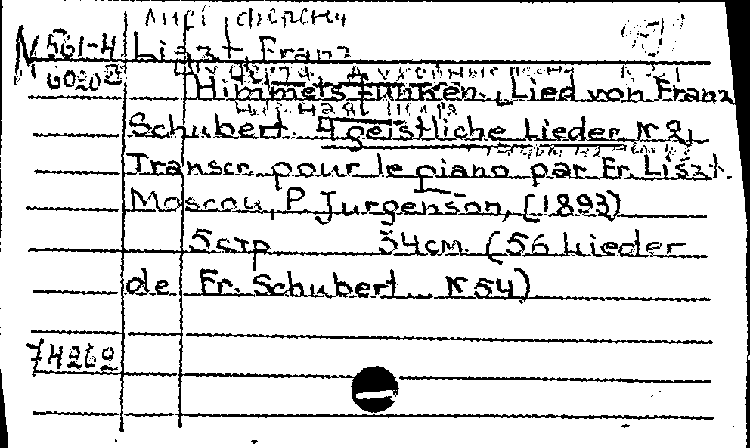 561-4 Liszt, Franz
6020
Himmelsfunken. Lied von Franz
Schubert. 4 geistliche Lieder N 2.
Transcr. pour le piano par Fr. Liszt.
Moscou, P. Jurgenson, [1893]
5 стр. 34 см. (56 Lieder
de Fr. Schubert... N 54)
74262